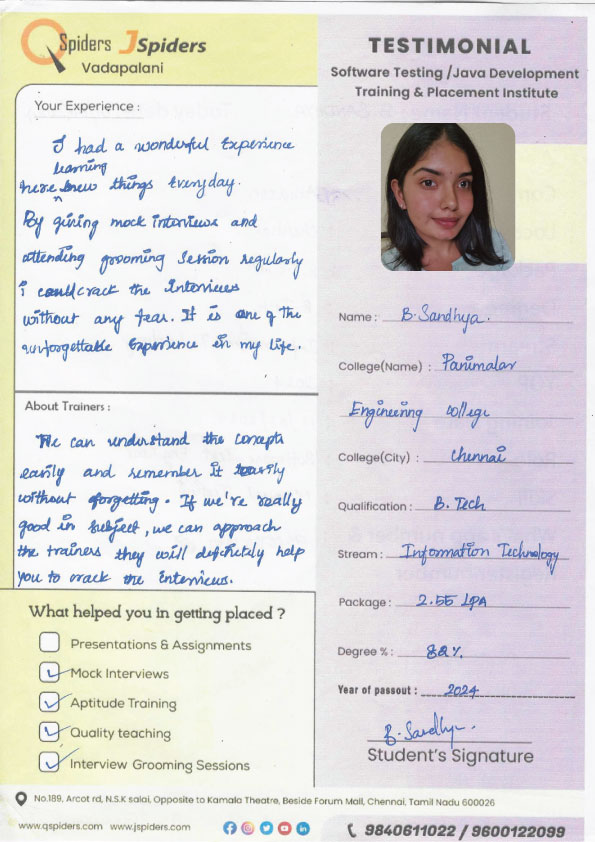 QSpiders JSpiders
Vadapalani
Your Experience :
I had a wonderful Experience
learning
here new things Everyday.
By giving mock interviews and
attending grooming Session regularly
i could crack the Interviews
without any fear. It is one of the
unforgettable Experience in my life.
About Trainers :
We can understand the concepts
easily and remember it easily
without forgetting. If we're really
good in subject, we can approach
the trainers they will definitely help
you to crack the interviews.
What helped you in getting placed ?
Presentations & Assignments
Mock Interviews
Aptitude Training
Quality teaching
Interview Grooming Sessions
TESTIMONIAL
Software Testing /Java Development
Training & Placement Institute
Name : B. Sandhya.
College(Name) : Panimalar
Engineering college
College(City) : chennai
Qualification : B. Tech
Stream : Information Technology
Package : 2.55 LPA
Degree % : 82%
Year of passout : 2024
B. Sandhya
Student's Signature
No.189, Arcot rd, N.S.K salai, Opposite to Kamala Theatre, Beside Forum Mall, Chennai, Tamil Nadu 600026
www.qspiders.com www.jspiders.com
9840611022 / 9600122099